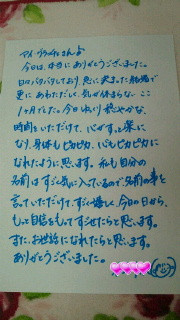 今日は、本当にありがとうございました。
日々バタバタしており、急に決まった転職で
更にあわただしく、気が休まらない、ここ
1ヶ月でした。今日ゆっくり穏やかな
時間をいただけて、心がすっと楽に
なり、身体もピカピカ、心もピカピカに
なれたように思います。私も自分の
名前はすごく気に入っているので名前の事を
言っていただけて、すごく嬉しく、今日の日から
もっと自信をもってすごせたらと思います。
また、お世話になれたらと思います。
ありがとうございました。